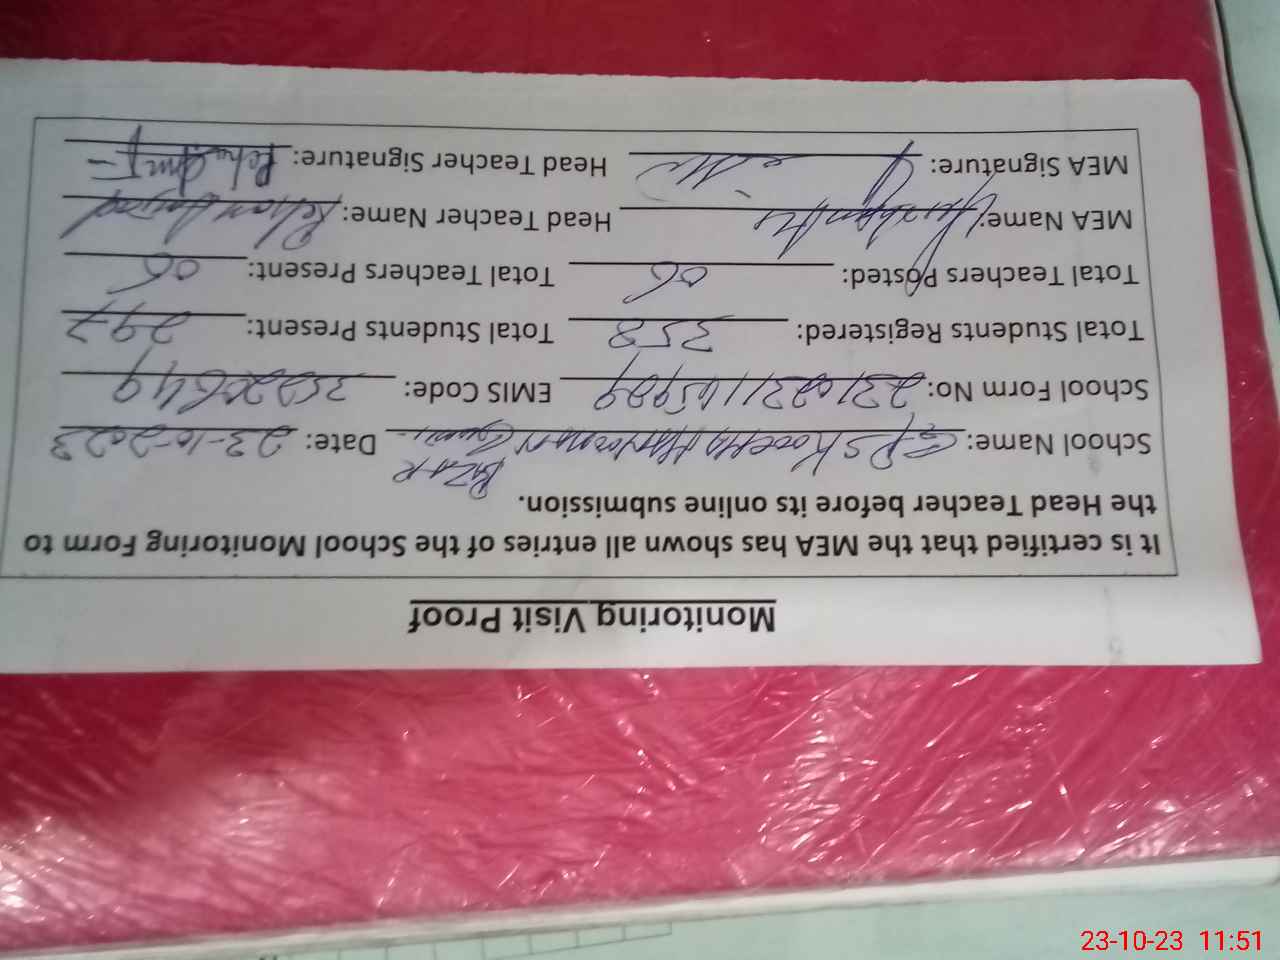 Monitoring Visit Proof
It is certified that the MEA has shown all entries of the School Monitoring Form to
the Head Teacher before its online submission.
School Name: GPS KOOCHA BAZAR Date: 23-10-2023
School Form No: EMIS Code: 35220649
Total Students Registered: 358 Total Students Present: 297
Total Teachers Posted: 06 Total Teachers Present: 06
MEA Name: Head Teacher Name: Rehan
MEA Signature: Head Teacher Signature:
23-10-23 11:51